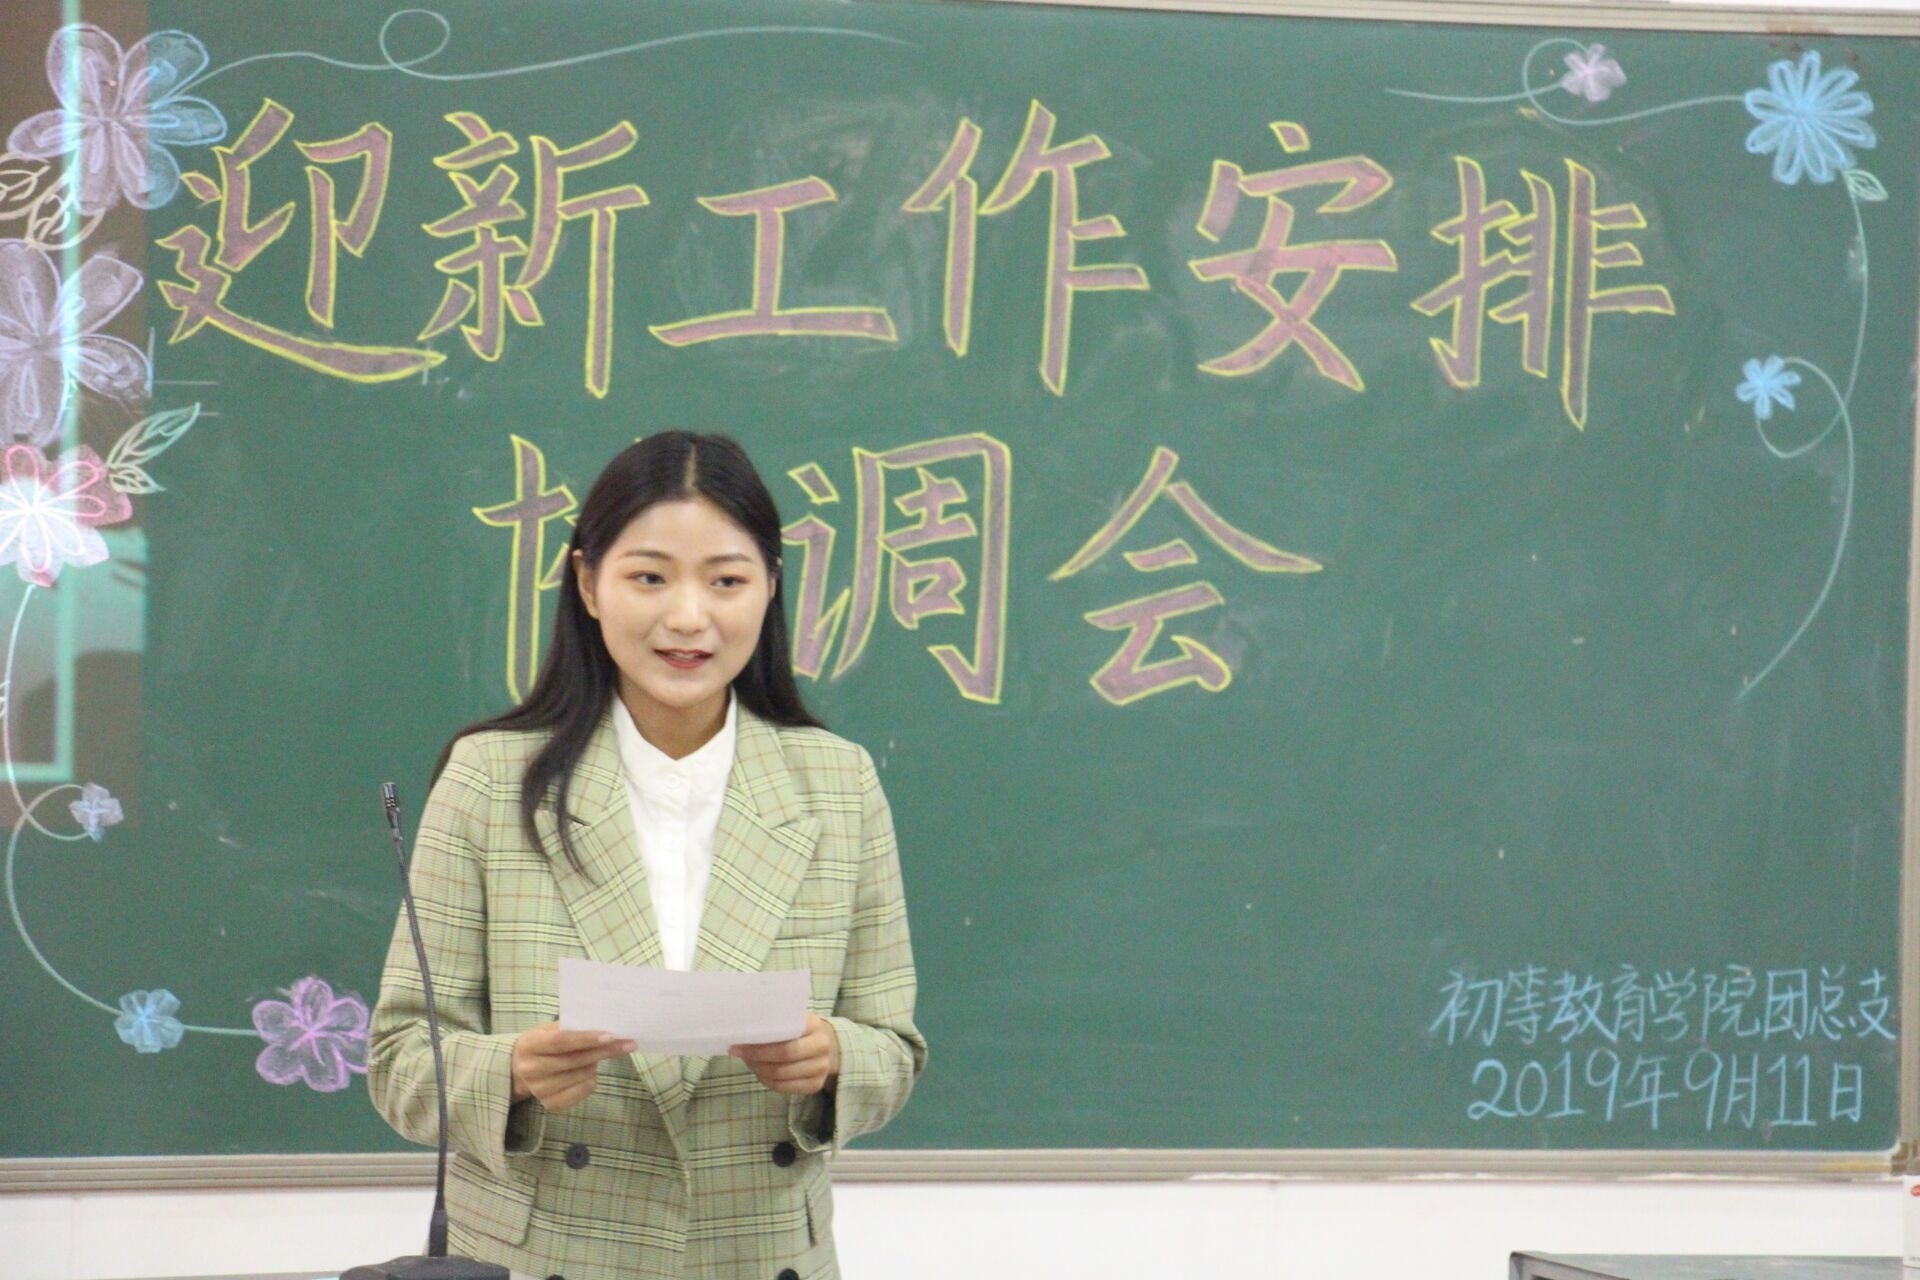 迎新工作安排
协调会
初等教育学院团总支
2019年9月11日